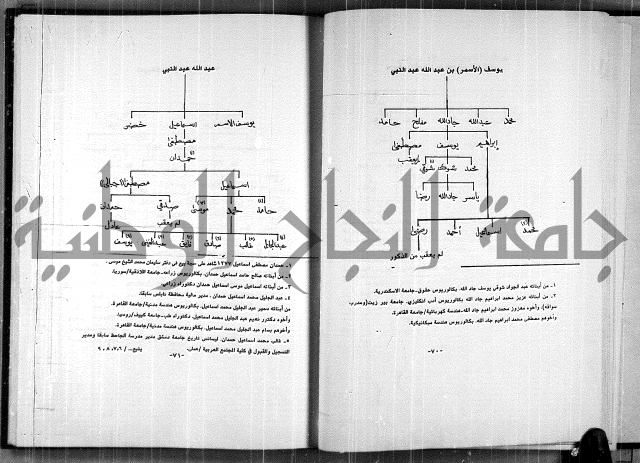 يوسف (الأسمر) بن عبد الله عبد النبي
محمد عبدالله جادالله مفلح حامد
ابراهيم يوسف مصطفى
محمد شوكت شوقي
ياسر جادالله رضا
محمد اسماعيل أحمد
لم يعقب من الذكور
١- من أبنائه عبد الجواد شوقي يوسف جاد الله. بكالوريوس حقوق-جامعة الاسكندرية.
٢- من أبنائه عزيز محمد ابراهيم جاد الله. بكالوريوس أدب انكليزي- جامعة بير زيت(ومدرب
سواقة). وأخوه معزوز محمد ابراهيم جاد الله-هندسة كهربائية/جامعة القاهرة.
وأخوهم مصطفى محمد ابراهيم جاد الله. بكالوريوس هندسة ميكانيكية.
-٧٠-
عبد الله عبد النبي
يوسف الاسمر اسماعيل خضر
مصطفى
حمدان
اسماعيل مصطفى
حامد محمد موسى صدقي حمدان
لم يعقب عادل
عبدالجليل غالب صادق فايق عبدالغني يوسف
١- حمدان مصطفى اسماعيل ١٢٧٧ شاهد على حجة بيع في دفاتر سليمان محمد الشيخ موسى.
٢- من أبنائه صالح حامد اسماعيل حمدان. بكالوريوس زراعة- جامعة اللاذقية/سوريا.
٣- من أبنائه اسماعيل موسى اسماعيل حمدان دكتوراه زراعي.
٤- عبد الجليل محمد اسماعيل حمدان. مدير مالية محافظة نابلس سابقا.
من أبنائه سمير عبد الجليل محمد اسماعيل. بكالوريوس هندسة مدنية/ جامعة القاهرة.
وأخوه دكتور نعيم عبد الجليل محمد اسماعيل. دكتوراه طب-جامعة كييف/روسيا.
وأخوهم بسام عبد الجليل محمد اسماعيل. بكالوريوس هندسة مدنية/جامعة القاهرة.
٥- غالب محمد اسماعيل حمدان. ليسانس تاريخ جامعة دمشق مدير مدرسة الجاحظ سابقا ومدير
التسجيل والقبول في كلية المجتمع العربية /عمان. يتبع
-٧١-
جامعة النجاح الوطنية